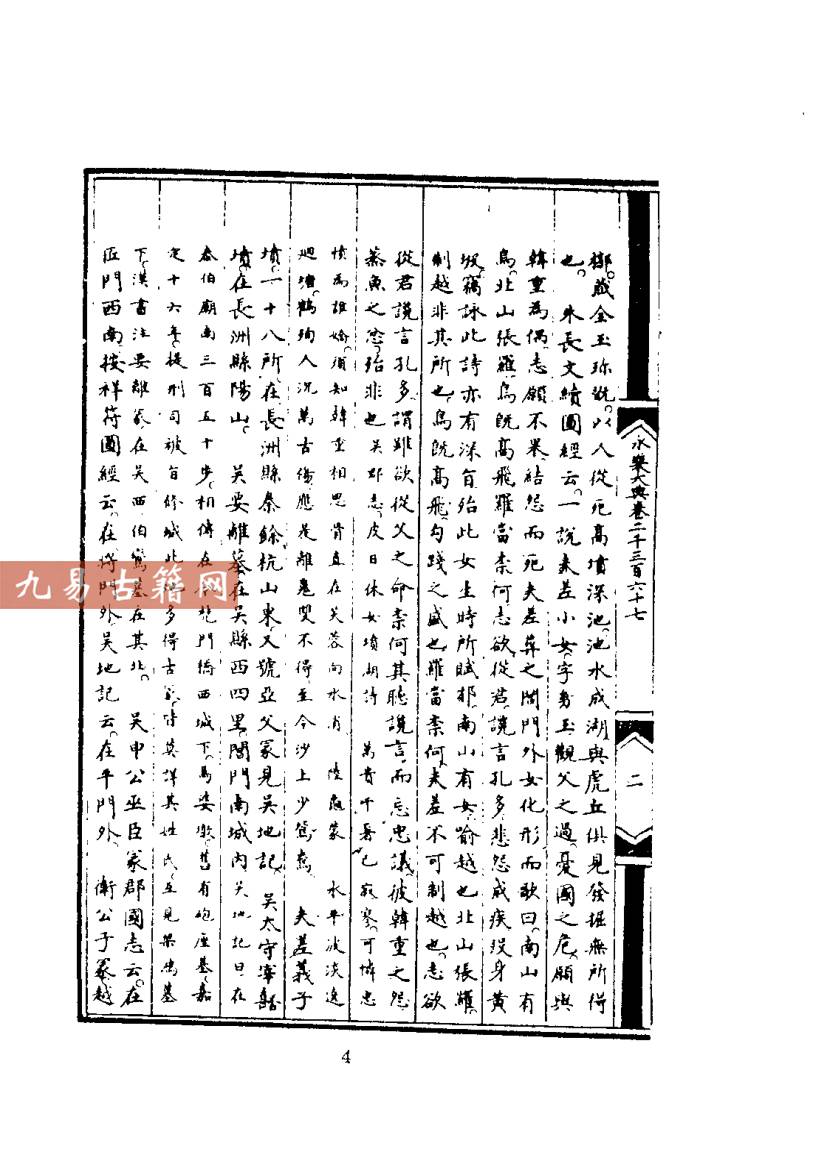 永樂大典卷二千三百六十七
二
槨藏金玉珍玩以人從死高墳深池池水成湖與虎丘俱見發掘無所得
也 朱長文續圖經云一說夫差小女字幼玉觀父之過憂國之危願與
韓重為偶志願不果結怨而死夫差葬之閶門外女化形而歌曰南山有
鳥北山張羅鳥既高飛羅當柰何志欲從君讒言孔多悲怨成疾沒身黃
坡竊詠此詩亦有深旨殆此女生時所賦耶南山有女喻越也北山張羅
制越非其所也鳥既高飛勾踐之盛也羅當柰何夫差不可制越也志欲
從君讒言孔多謂雖欲從父之命柰何其聽讒言而忘忠議彼韓重之怨
蒸魚之忿殆非也吳郡志皮日休女墳湖詩 萬貴千奢已寂寥可憐幽
憤為誰嬌須知韓重相思骨直在芙蓉向水消 陸龜蒙 水平波淡遶
迴塘鶴殉人沉萬古傷應是離魂雙不得至今沙上少鴛鴦 夫差義子
墳一十八所在長洲縣秦餘杭山東又號亞父冢見吳地記 吳太守宰嚭
墳在長洲縣陽山 吳要離墓在吳縣西四里閶門南城內吳地記曰在
泰伯廟南三百五十步相傳在 門橋西城下馬婆墩舊有砲座基嘉
定十六年提刑司被旨修城此 多得古 莫詳其姓氏互見梁鴻墓
下漢書注要離冢在吳西伯鸞墓在其北 吳申公巫臣冢郡國志云在
匠門西南按祥符圖經云在將門外吳地記云在平門外 衛公子冢越
4
九易古籍网